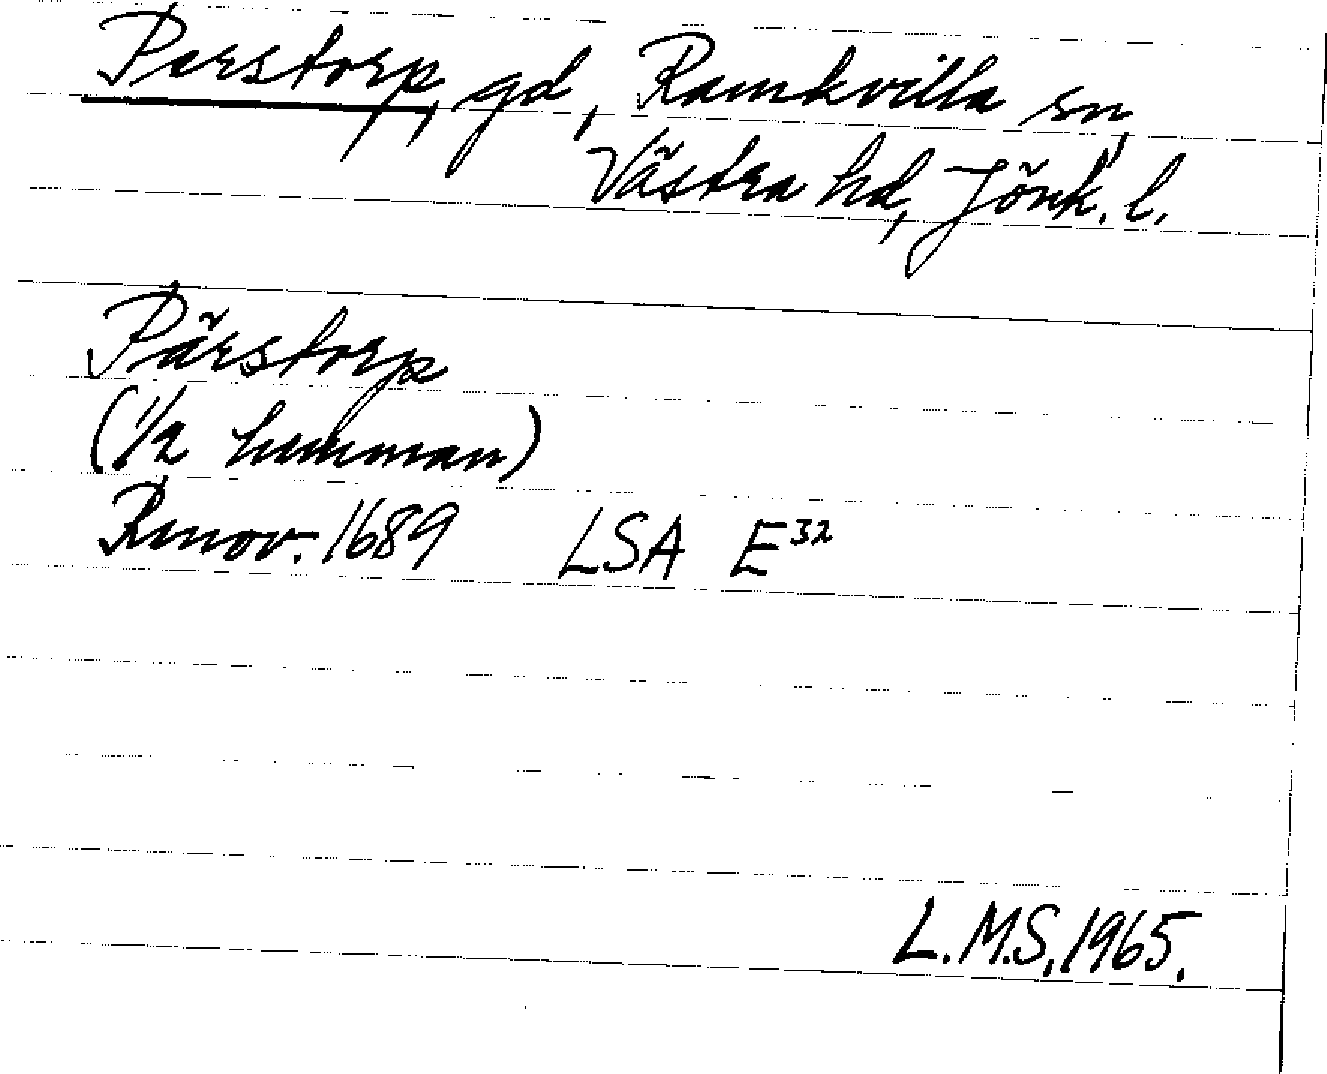 Perstorp, gd, Ramkvilla sn,
Västra hd, Jönk. l.
Pärstorp
(1/2 hemman)
Renov. 1689 LSA E³²
L.M.S, 1965.